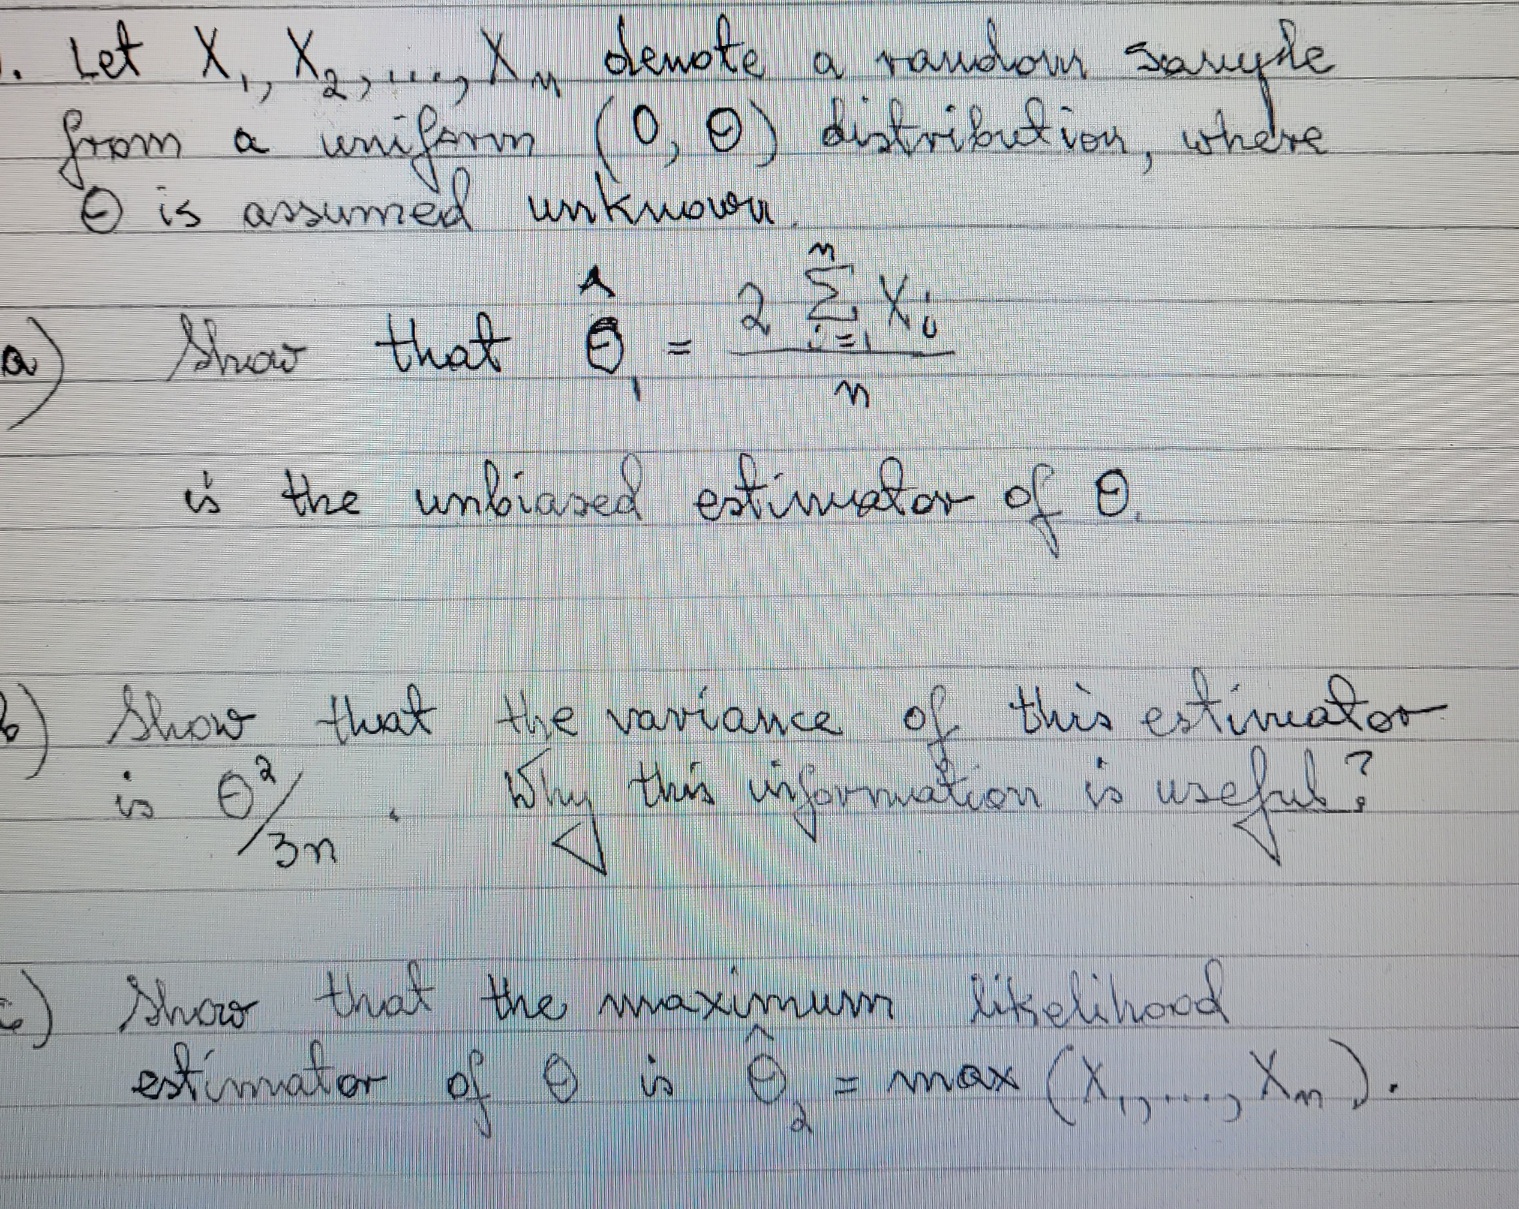 . Let X₁, X₂, ..., Xₙ denote a random sample
from a uniform (0, θ) distribution, where
θ is assumed unknown.
a) Show that θ̂₁ = 2 Σⁿᵢ₌₁ Xᵢ / n
is the unbiased estimator of θ.
b) Show that the variance of this estimator
is θ²/3n. Why this information is useful?
c) Show that the maximum likelihood
estimator of θ is θ̂₂ = max (X₁, ..., Xₙ).